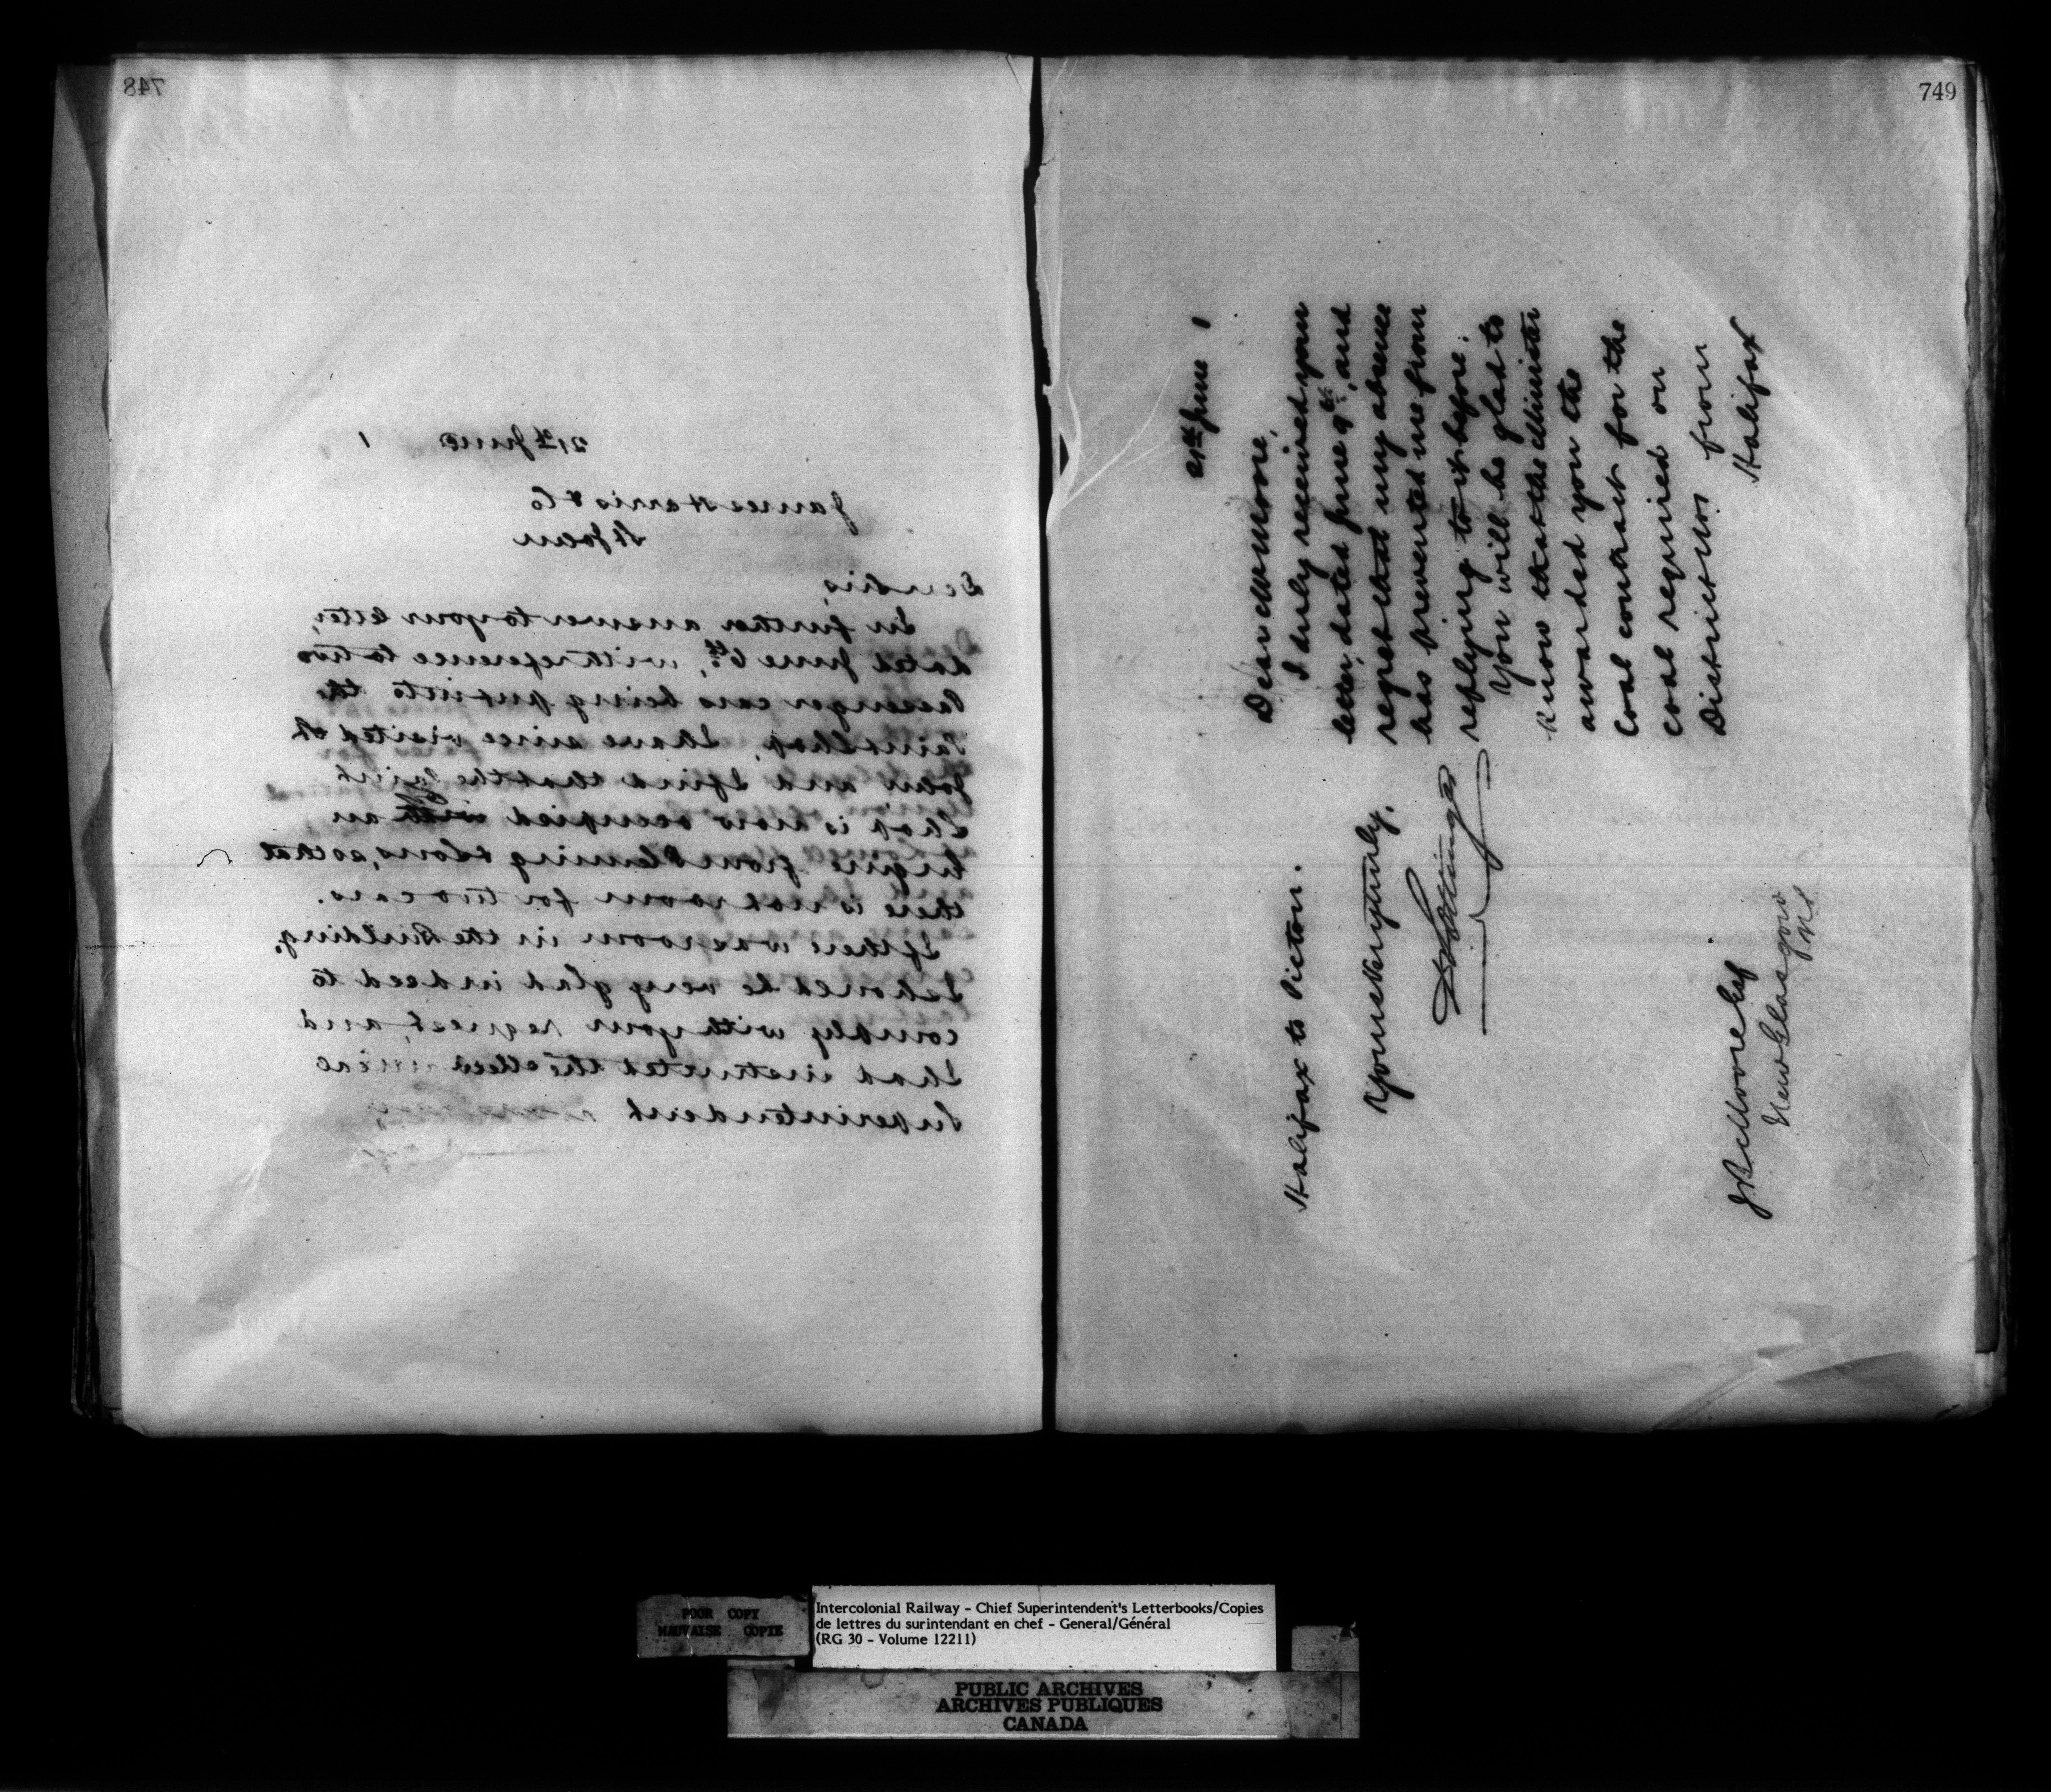 748
21st June 1
James Harris & Co
St John
Dear Sirs,
In further answer to your letter,
dated June 6th, with reference to two
Passenger cars being put into the
Paint Shop, I have since visited St
John and I find that the Paint
Shop is now occupied with an
Engine from Fleming & Sons, so that
there is not room for two cars.
If there was room in the Building,
I should be very glad indeed to
comply with your request, and
I had instructed the
Superintendent
749
21st June 1
Dear Mr Moore,
I duly received your
letter, dated June 9th, and
regret that my absence
has prevented me from
replying to it before.
You will be glad to
know that the Minister
awarded you the
Coal contract for the
coal required on
District No. from
Halifax
Halifax to Pictou.
Yours very truly,
D Pottinger
J R Moore Esq
New Glasgow
NS
POOR COPY
MAUVAISE COPIE
Intercolonial Railway - Chief Superintendent's Letterbooks/Copies
de lettres du surintendant en chef - General/Général
(RG 30 - Volume 12211)
PUBLIC ARCHIVES
ARCHIVES PUBLIQUES
CANADA